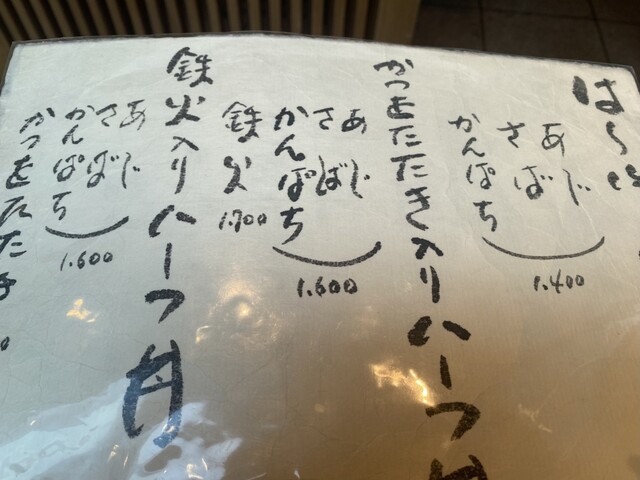 あじ
さば
かんぱち
1.400
かつをたたき入りハーフ丼
あじ
さば
かんぱち
1.600
鉄火
1.700
鉄火入りハーフ丼
あじ
さば
かんぱち
1.600
かつをたたき